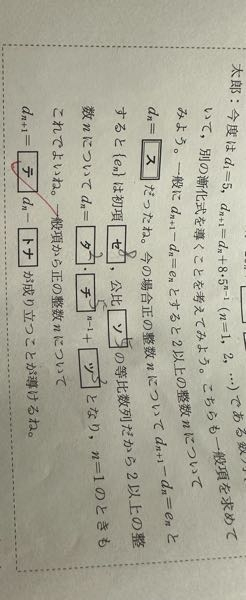 太郎:今度は d₁=5, dₙ₊₁=dₙ+8・5ⁿ⁻¹ (n=1, 2, …) である数列
いて,別の漸化式を導くことを考えてみよう。こちらも一般項を求めて
みよう。一般に dₙ₊₁−dₙ=eₙ とすると2以上の整数 n について
dₙ= ス だったね。今の場合正の整数 n について dₙ₊₁−dₙ=eₙ と
すると {eₙ} は初項 セ 8, 公比 ソ 5 の等比数列だから2以上の整
数 n について dₙ= タ 2・チ 5 ⁿ⁻¹+ ツ 3 となり, n=1 のときも
これでよいね。一般項から正の整数 n について
dₙ₊₁= テ dₙ トナ が成り立つことが導けるね。